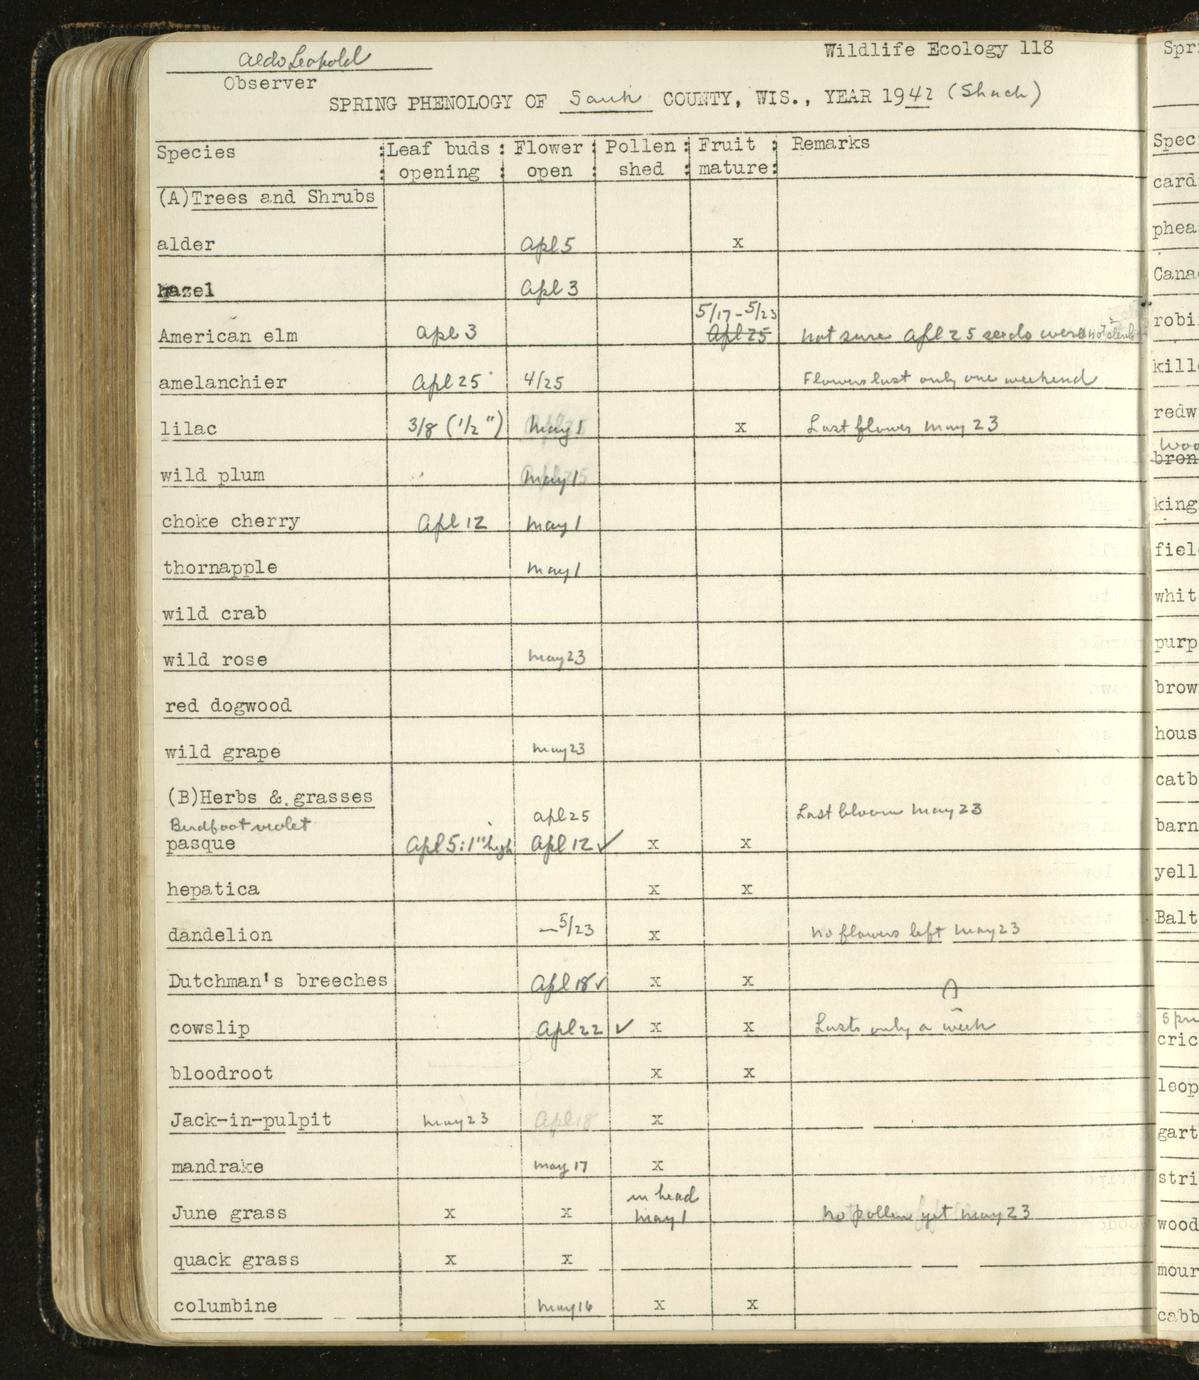 Aldo Leopold
Observer
Wildlife Ecology 118
SPRING PHENOLOGY OF Sauk COUNTY, WIS., YEAR 1942 (Shack)
Species : Leaf buds opening : Flower open : Pollen shed : Fruit mature : Remarks
(A) Trees and Shrubs
alder Apl 5 x
hazel Apl 3
5/17 - 5/23
American elm Apl 3 Apl 25 not sure Apl 25 seeds were not
amelanchier Apl 25 4/25 Flowers last only one weekend
lilac 3/8 (1/2") May 1 x Last flower May 23
wild plum May 1
choke cherry Apl 12 May 1
thornapple May 1
wild crab
wild rose May 23
red dogwood
wild grape May 23
(B) Herbs & grasses
Birdfoot violet Apl 25 Last bloom May 23
pasque Apl 5: 1" high Apl 12 ✓ x x
hepatica x x
dandelion —5/23 x No flowers left May 23
Dutchman's breeches Apl 18 ✓ x x
cowslip Apl 22 ✓ x x Lasts only a week
bloodroot x x
Jack-in-pulpit May 23 Apl 18 x
mandrake May 17 x
in head
June grass x x May 1 No pollen yet May 23
quack grass x x
columbine May 16 x x
Spri
Spec
card
phea
Cana
robi
kill
redw
woo
bron
king
fiel
whit
purp
brow
hous
catb
barn
yell
Balt
cric
leop
gart
stri
wood
mour
cabb